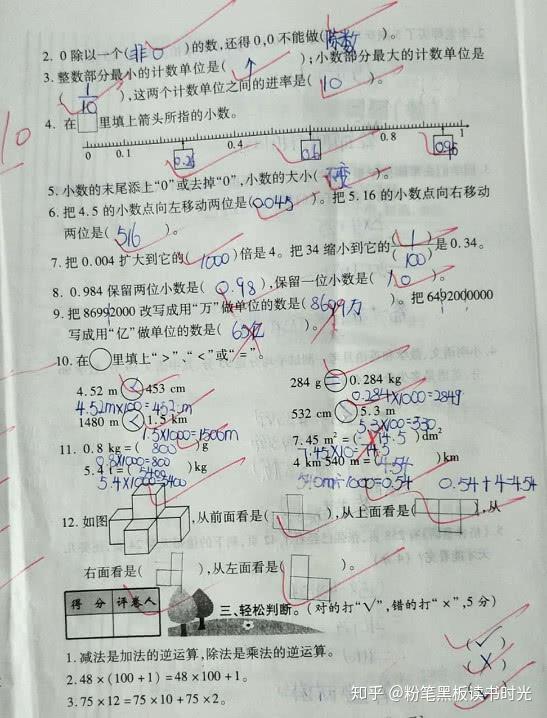 2. 0 除以一个(非0)的数,还得 0,0 不能做(除数)。
3. 整数部分最小的计数单位是(1);小数部分最大的计数单位是
(1/10),这两个计数单位之间的进率是(10)。
4. 在□里填上箭头所指的小数。
0 0.1 0.4 0.8 1
0.26 0.6 0.96
5. 小数的末尾添上“0”或去掉“0”,小数的大小(不变)。
6. 把 4.5 的小数点向左移动两位是(0.045)。把 5.16 的小数点向右移动
两位是(516)。
7. 把 0.004 扩大到它的(1000)倍是 4。把 34 缩小到它的(1/100)是 0.34。
8. 0.984 保留两位小数是(0.98),保留一位小数是(1.0)。
9. 把 86992000 改写成用“万”做单位的数是(8699万)。把 6492000000
写成用“亿”做单位的数是(65亿)。
10. 在○里填上“>”、“<”或“=”。
4.52 m < 453 cm 284 g = 0.284 kg
4.52m×100=452cm 0.284×1000=284g
1480 m < 1.5 km 532 cm 5.3 m
1.5×1000=1500m 5.3×100=530
11. 0.8 kg=(800)g 7.45 m²=(14.5)dm²
0.8×1000=800 7.45×10=14.5
5.4 t=(5400)kg 4 km 540 m=(4.54)km
5.4×1000=5400 540m÷1000=0.54 0.54+4=4.54
12. 如图,从前面看是( ),从上面看是( ),从
右面看是( ),从左面看是( )。
得 分 评卷人
三、轻松判断。(对的打“√”,错的打“×”,5 分)
1. 减法是加法的逆运算,除法是乘法的逆运算。 (√)
2. 48×(100+1)=48×100+1. (×)
3. 75×12=75×10+75×2。
10
知乎 @粉笔黑板读书时光